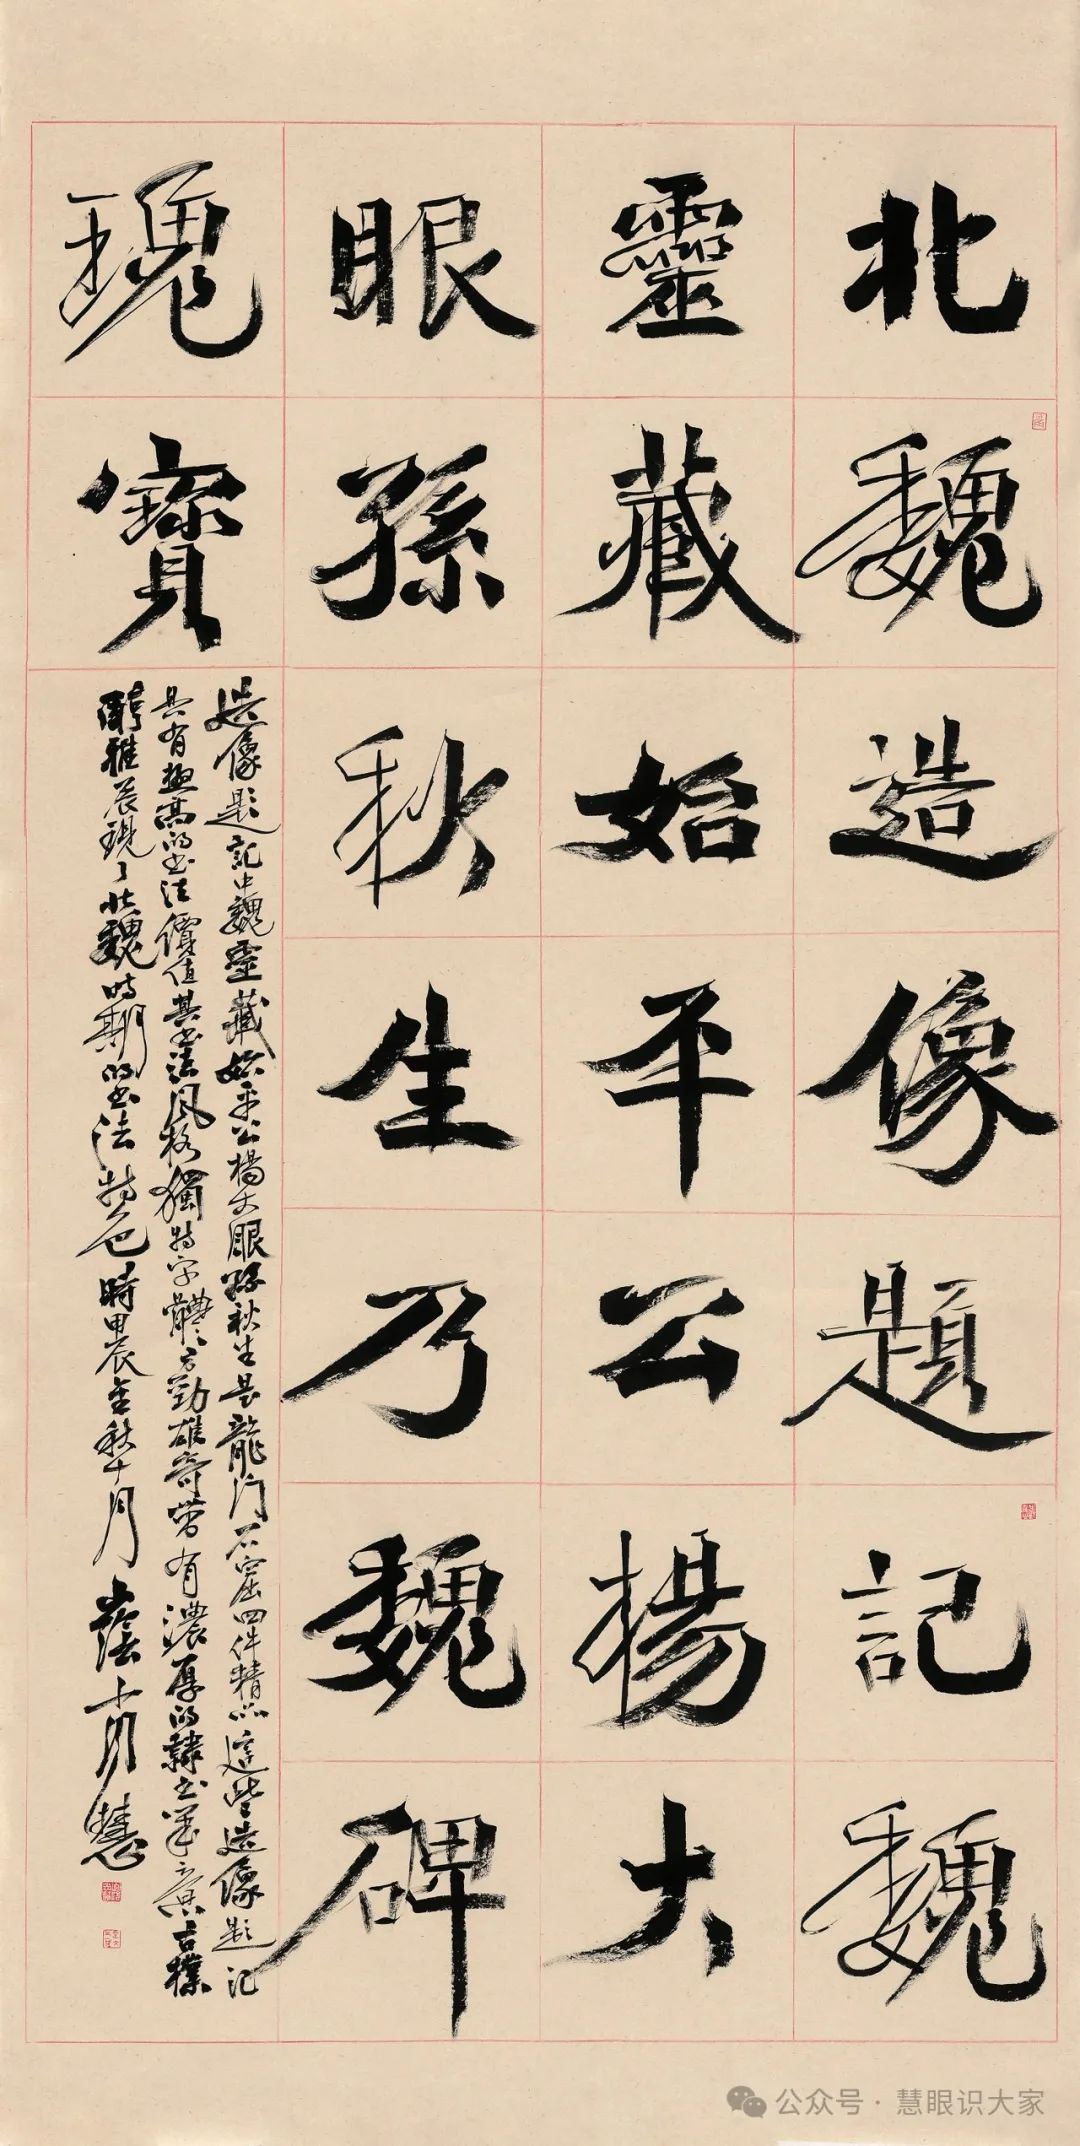 北魏造像題記魏
靈藏始平公楊大
眼孫秋生乃魏碑
瑰寶
造像題記中魏靈藏始平公楊大眼孫秋生是龍门石窟四件精品這些造像題记
具有極高的书法價值其书法风格獨特字體方勁雄奇帶有濃厚的隸书笔意古樸
醇雅展現了北魏时期的书法特色時甲辰金秋十月慧
公众号·慧眼识大家